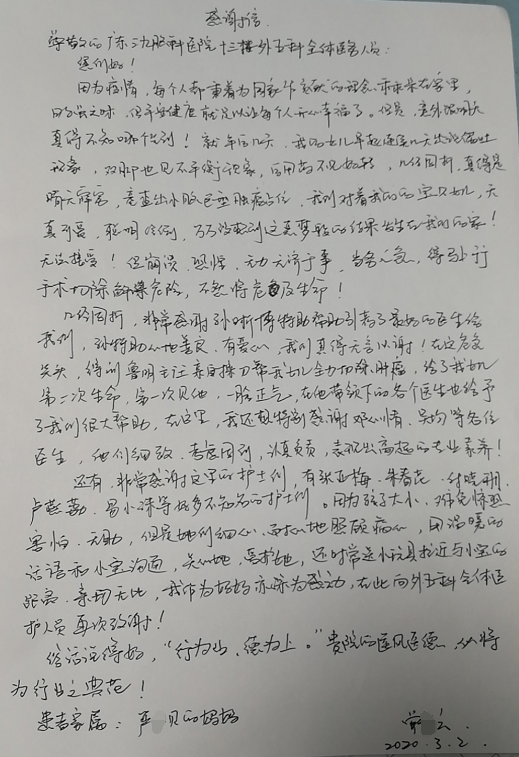 感谢信
尊敬的广东三九脑科医院十三楼外五科全体医务人员:
您们好!
因为疫情,每个人都秉着为国家作贡献的理念,乖乖呆在家里,
日子虽乏味,但平安健康就足以让每个人开心幸福了。但是,意外跟明天
真得不知哪个先到!就年后几天,我的女儿早起连续几天出现呕吐
现象,双脚也见不平衡现象,后用药不见好转,几经周折,真得是
晴天霹雳,竟查出小脑巨型肿瘤占位,我们对着我们的宝贝女儿,天
真可爱,聪明伶俐,万万没想到这恶梦般的结果发生在我们的家!
无法接受!但崩溃、恐惧、无力无济于事,当务之急,得马上行
手术切除解除危险,不然将危及生命!
几经周折,非常感谢孙昕博特助帮助引荐了最好的医生给
我们,孙特助心地善良、有爱心,我们真得无言以谢!在这危急
关头,得到鲁明主任亲自操刀帮我女儿全力切除肿瘤,给了我女儿
第二次生命,第一次见他,一脸正气,在他带领下的各个医生也给予
了我们很大帮助,在这里,我还想特别感谢邓心情、吴均等各位
医生,他们细致、考虑周到,认真负责,表现出高超的专业素养!
还有,非常感谢这里的护士们,有张亚梅、朱春花、付晓珊、
卢燕勤、易小沫等好多不知名的护士们。因为孩子大小,难免惊恐
害怕、无助,但是她们细心、耐心地照顾病心,用温暖的
话语和小宝沟通,关心她,爱护她,还时常送小玩具拉近与小宝的
距离,亲切无比,我作为妈妈亦深为感动,在此向外五科全体医
护人员再次致谢!
俗话说得好,“行为山、德为上。”贵院的医风医德,必将
为行业之典范!
患者家属:严 贝的妈妈
2020.3.2.